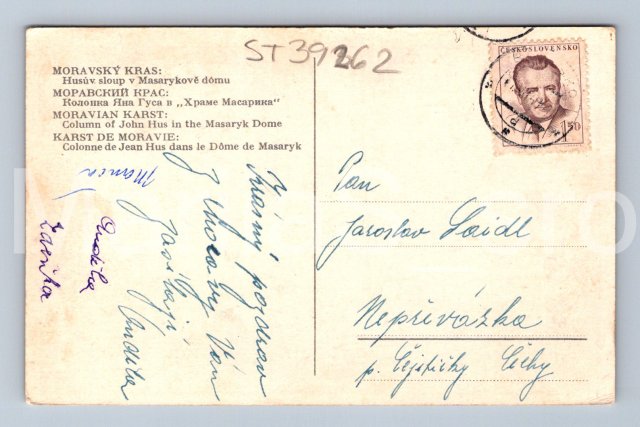 ST39262
MORAVSKÝ KRAS:
Husův sloup v Masarykově dómu
МОРАВСКИЙ КРАС:
Колонка Яна Гуса в „Храме Масарика“
MORAVIAN KARST:
Column of John Hus in the Masaryk Dome
KARST DE MORAVIE:
Colonne de Jean Hus dans le Dôme de Masaryk
Krásný pozdrav
z Vám
zasílají
Anděla
Zdeňka
ČESKOSLOVENSKO
1.50
Pan
Jaroslav Saidl
Nepřívázka
p. Čejtičky Čechy